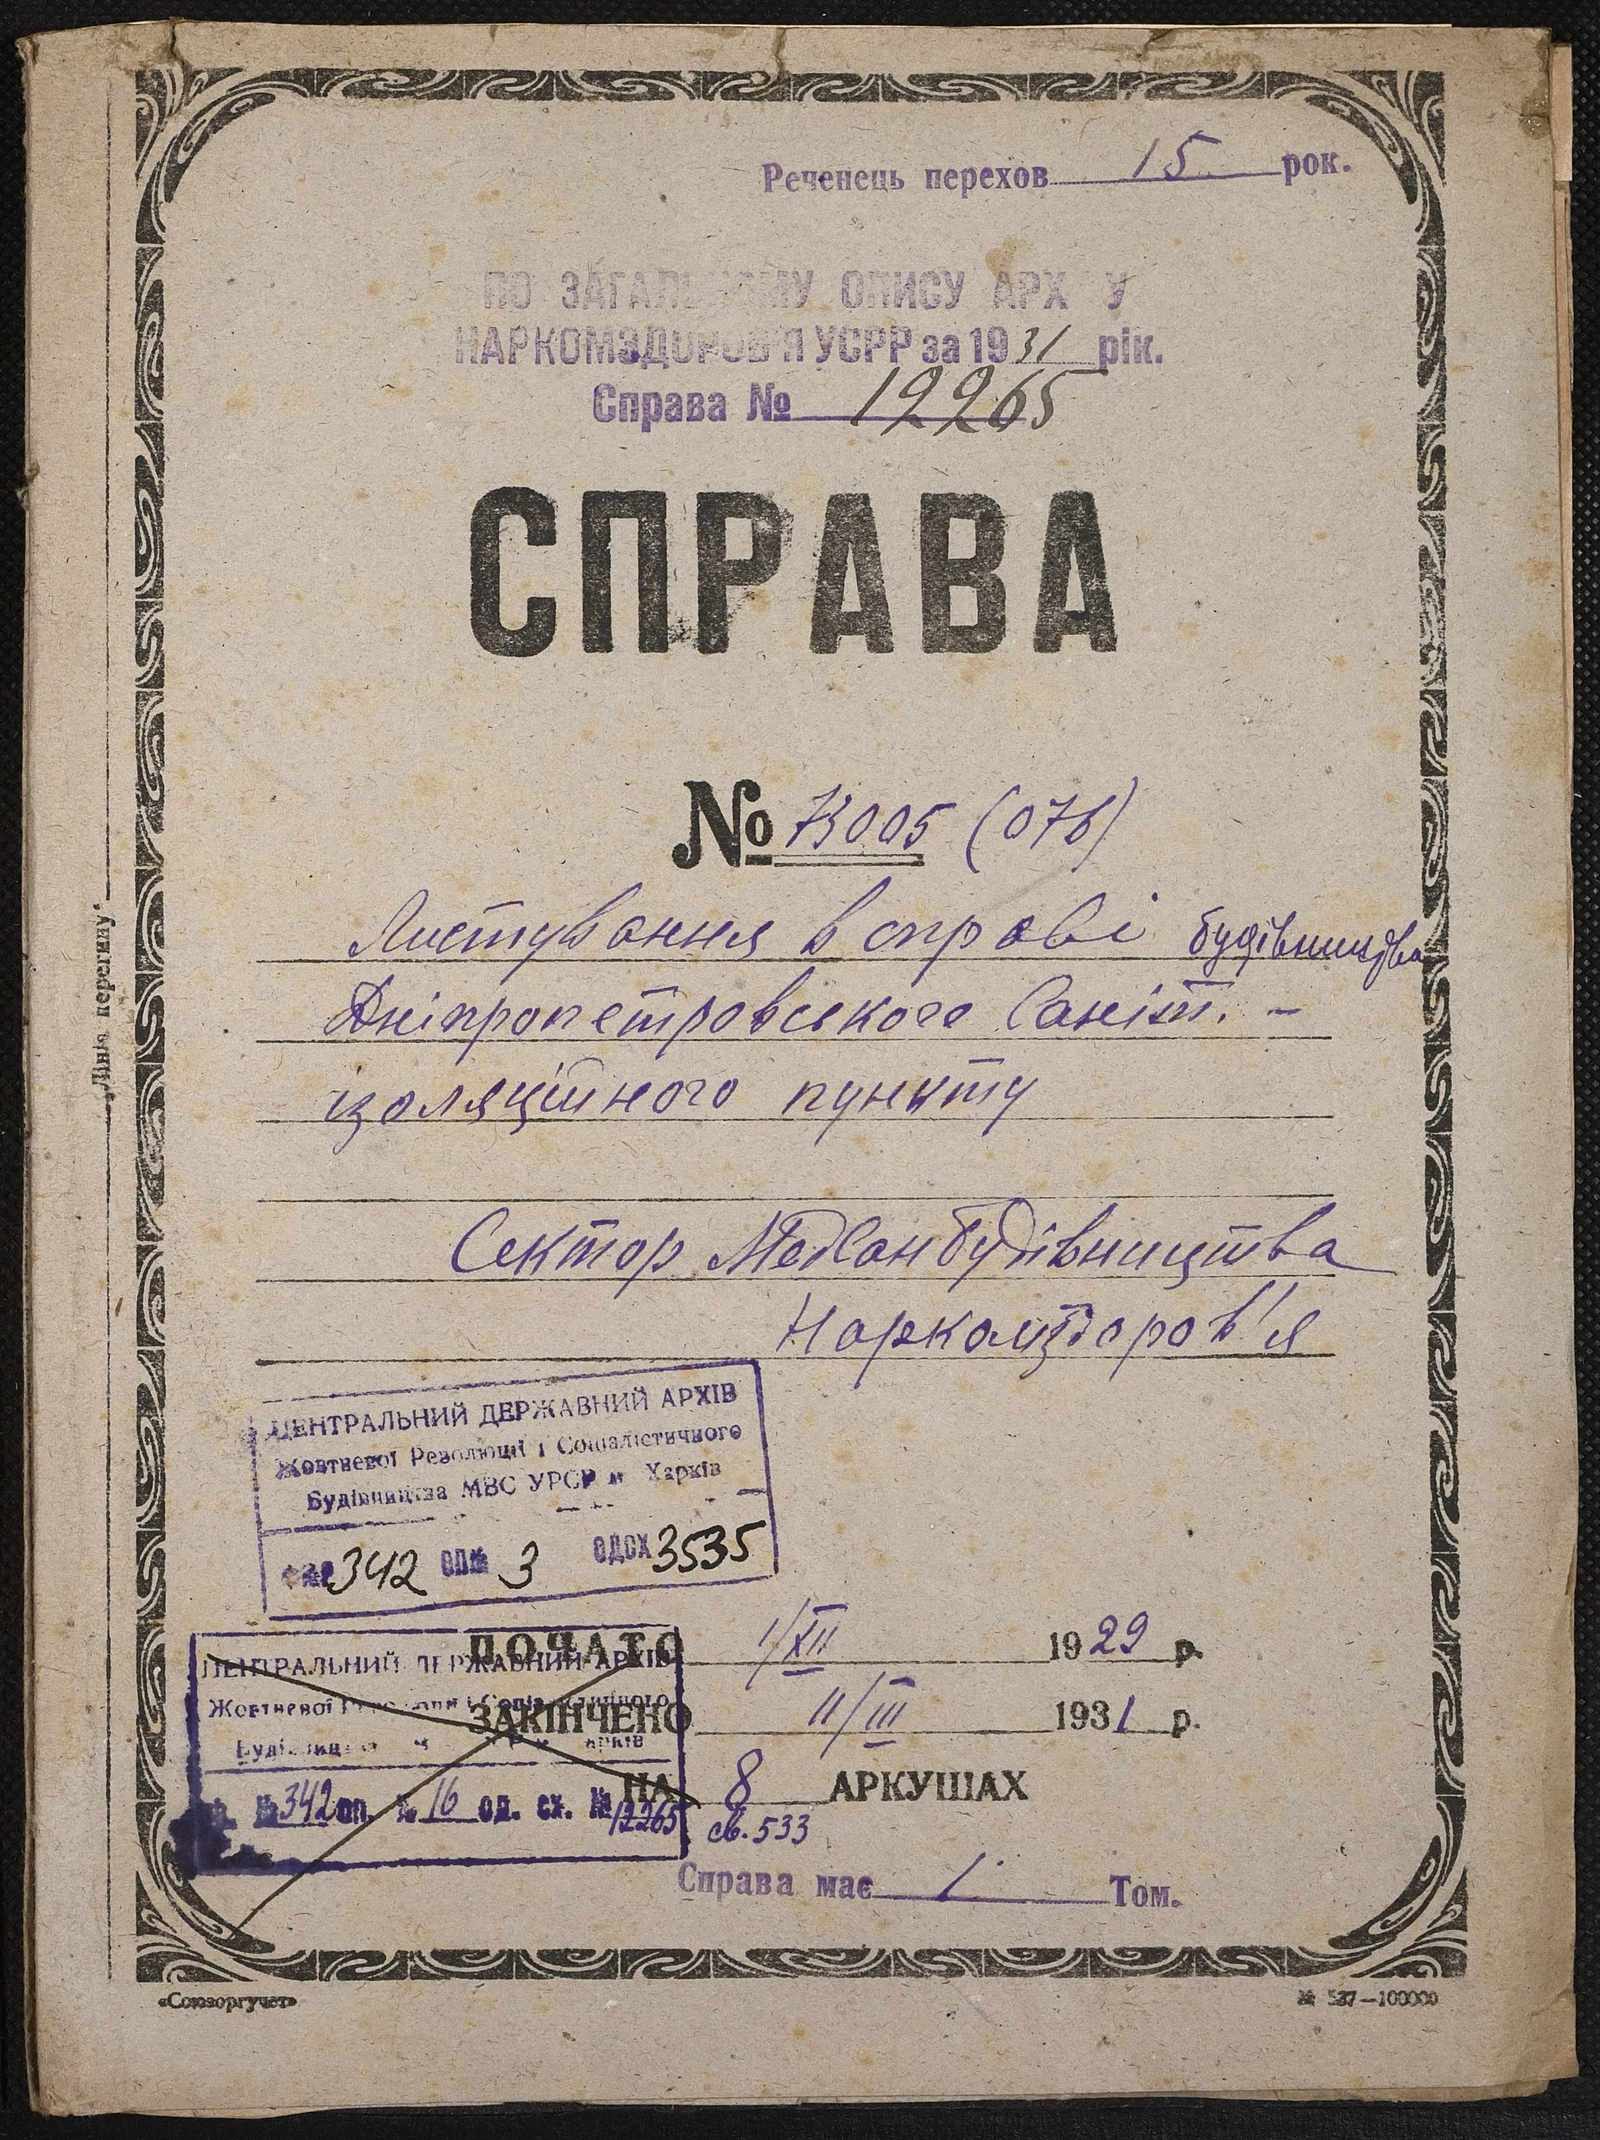 Реченець перехов 15 рок.
ПО ЗАГАЛЬНОМУ ОПИСУ АРХ У
НАРКОМЗДОРОВ'Я УСРР за 1931 рік.
Справа № 12265
СПРАВА
№ 73005 (07в)
Листування в справі будівництва
Дніпропетровського Саніт. -
ізоляційного пункту
Сектор МедСанбудівництва
Наркомздоров'я
„Лінія перегину"
ЦЕНТРАЛЬНИЙ ДЕРЖАВНИЙ АРХІВ
Жовтневої Революції і Соціалістичного
Будівництва МВС УРСР м Харків
342 ОП№ 3 ОДСХ 3535
ПОЧАТО 1/XII 1929 р.
ЦЕНТРАЛЬНИЙ ДЕРЖАВНИЙ АРХІВ
ЗАКІНЧЕНО 11/III 1931 р.
№ 342 оп. № 16 од. сх. № 12265
НА 8 АРКУШАХ
св. 533
Справа має 1 Том.
«Союзоргучет»
№ 537—100000